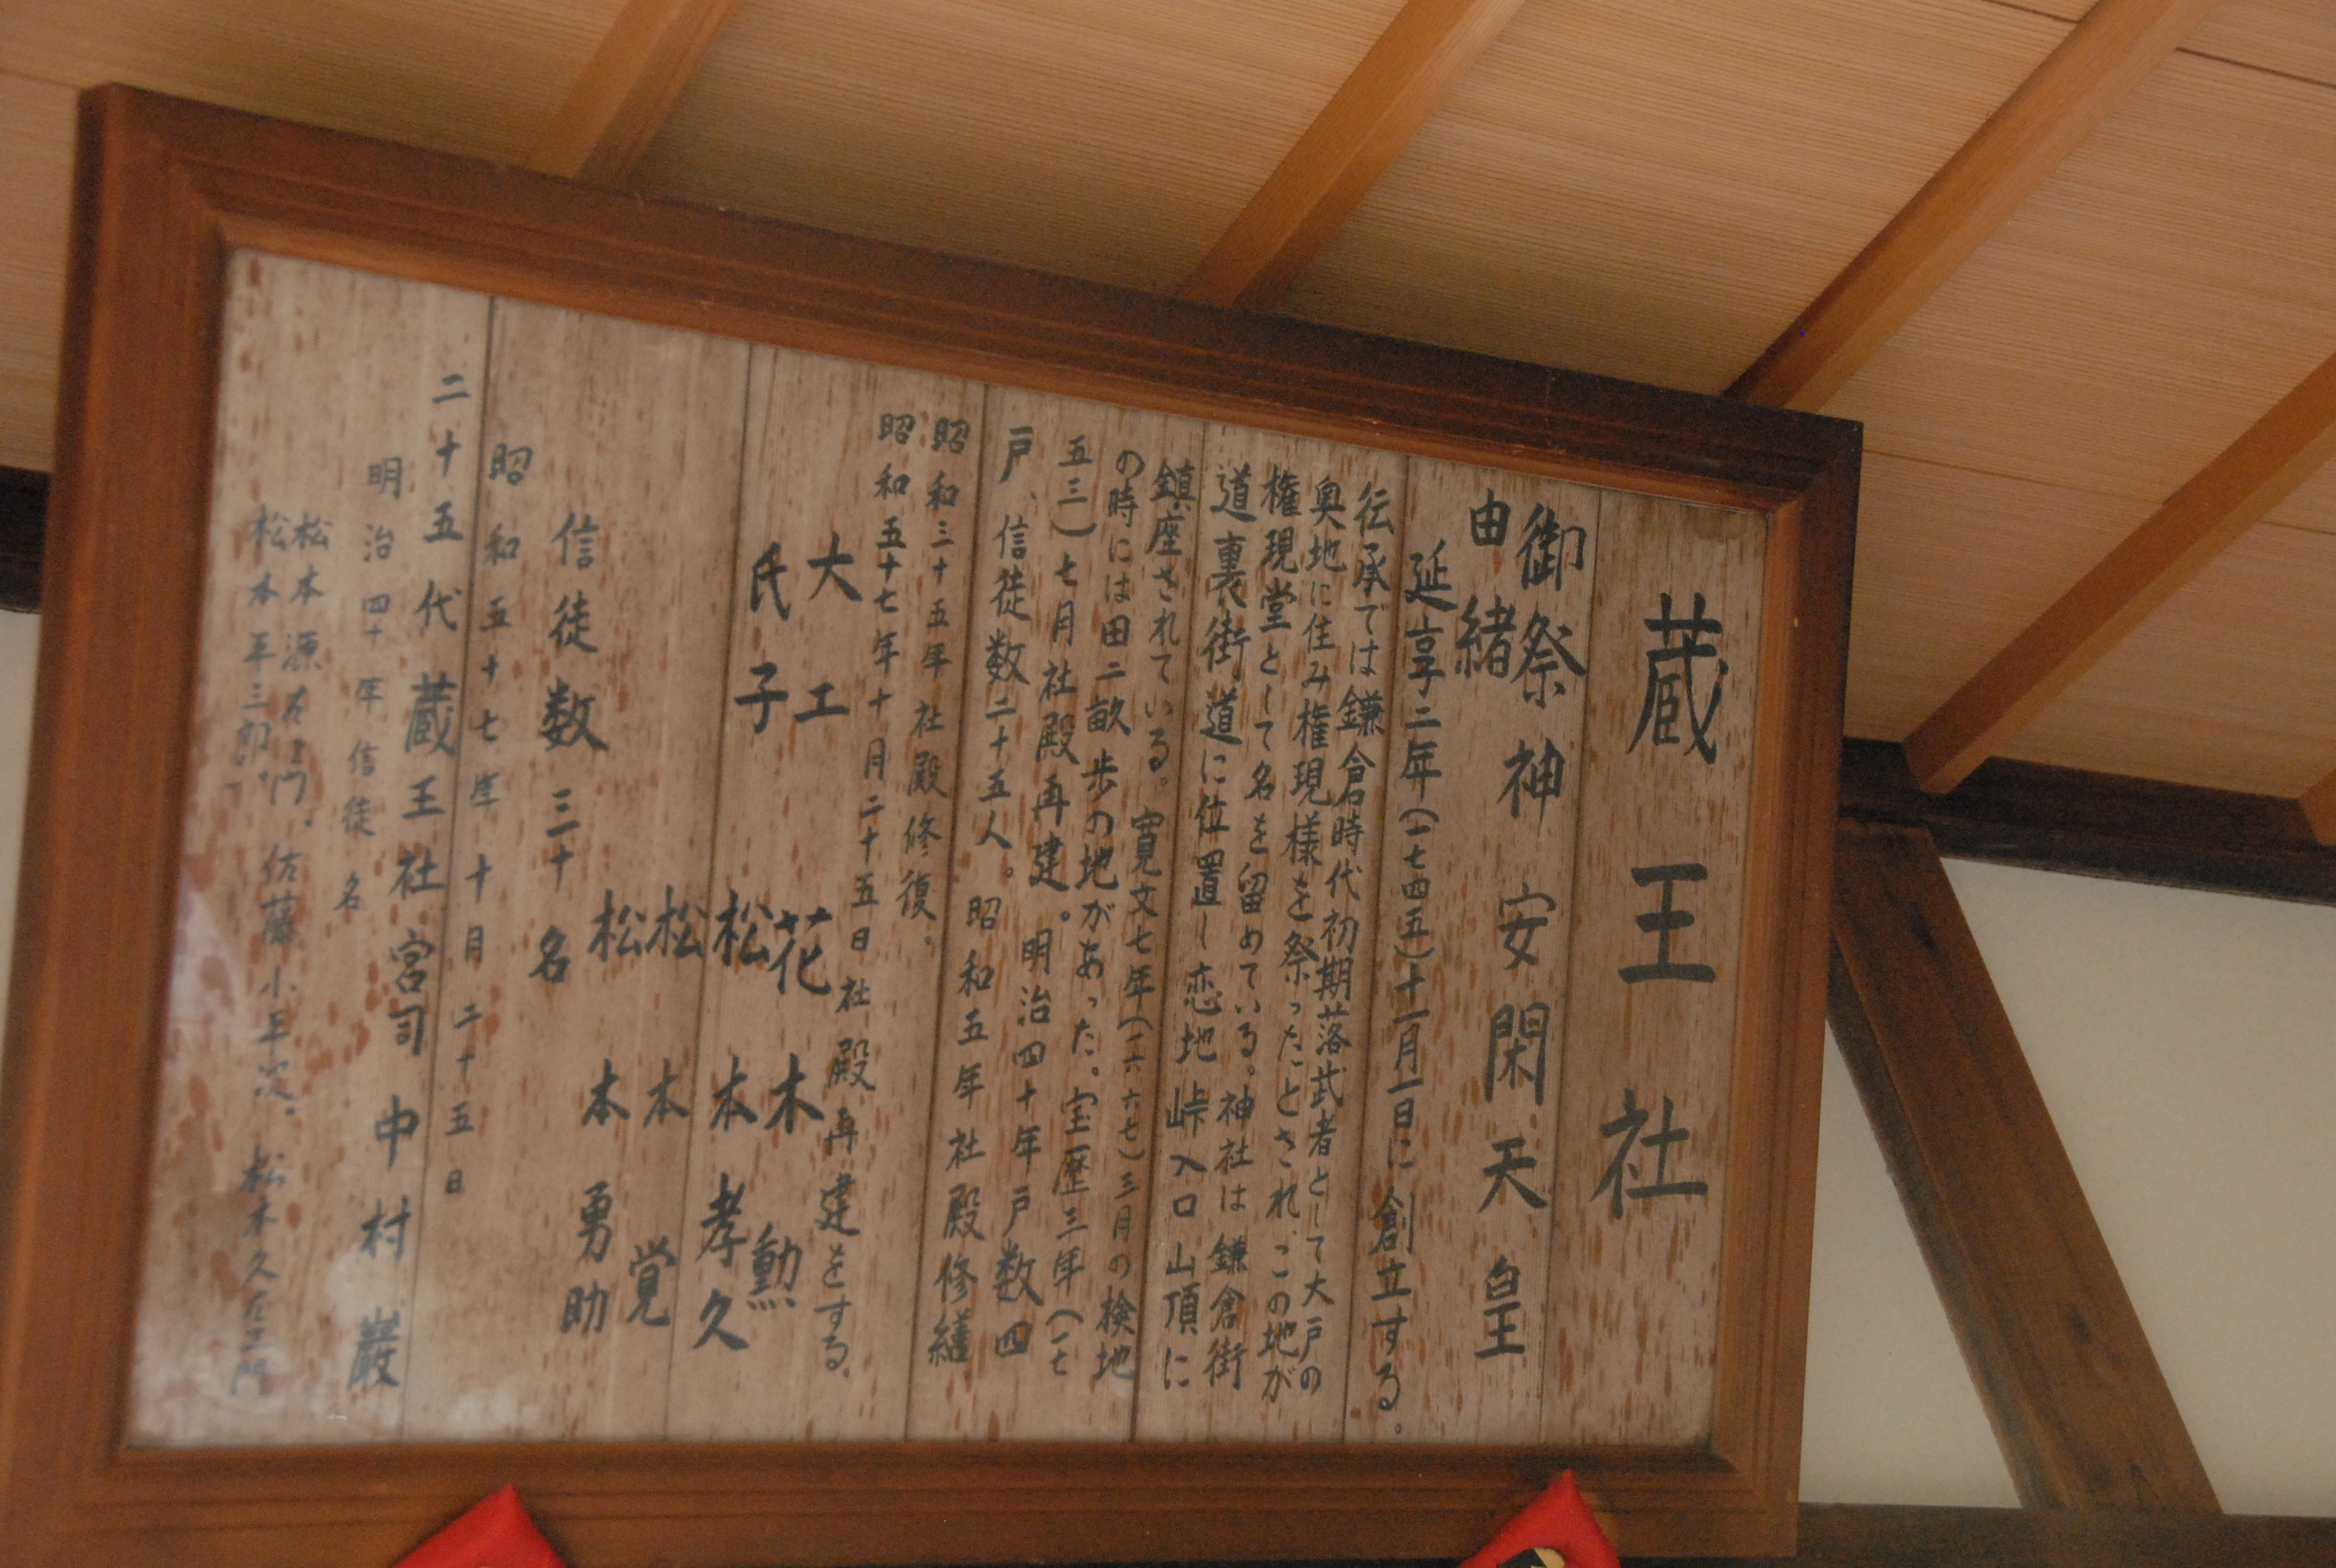 蔵王社
御祭神 安閑天皇
由緒
延享二年(一七四五)十一月一日に創立する。
伝承では鎌倉時代初期落武者として大戸の
奥地に住み権現様を祭ったとされ、この地が
権現堂として名を留めている。神社は鎌倉街
道裏街道に位置し恋地峠入口山頂に
鎮座されている。寛文七年(一六六七)三月の検地
の時には田二畝歩の地があった。宝歴三年(一七
五三)七月社殿再建。明治四十年戸数四
戸、信徒数二十五人。昭和五年社殿修繕
昭和三十五年社殿修復。
昭和五十七年十月二十五日社殿再建をする。
大工 花木勲
氏子 松本孝久
松本覚
松本勇助
信徒数三十名
昭和五十七年十月二十五日
二十五代蔵王社宮司中村巌
明治四十年信徒名
松本源左エ門. 佐藤小平次. 松本久左エ門
松本平三郎.